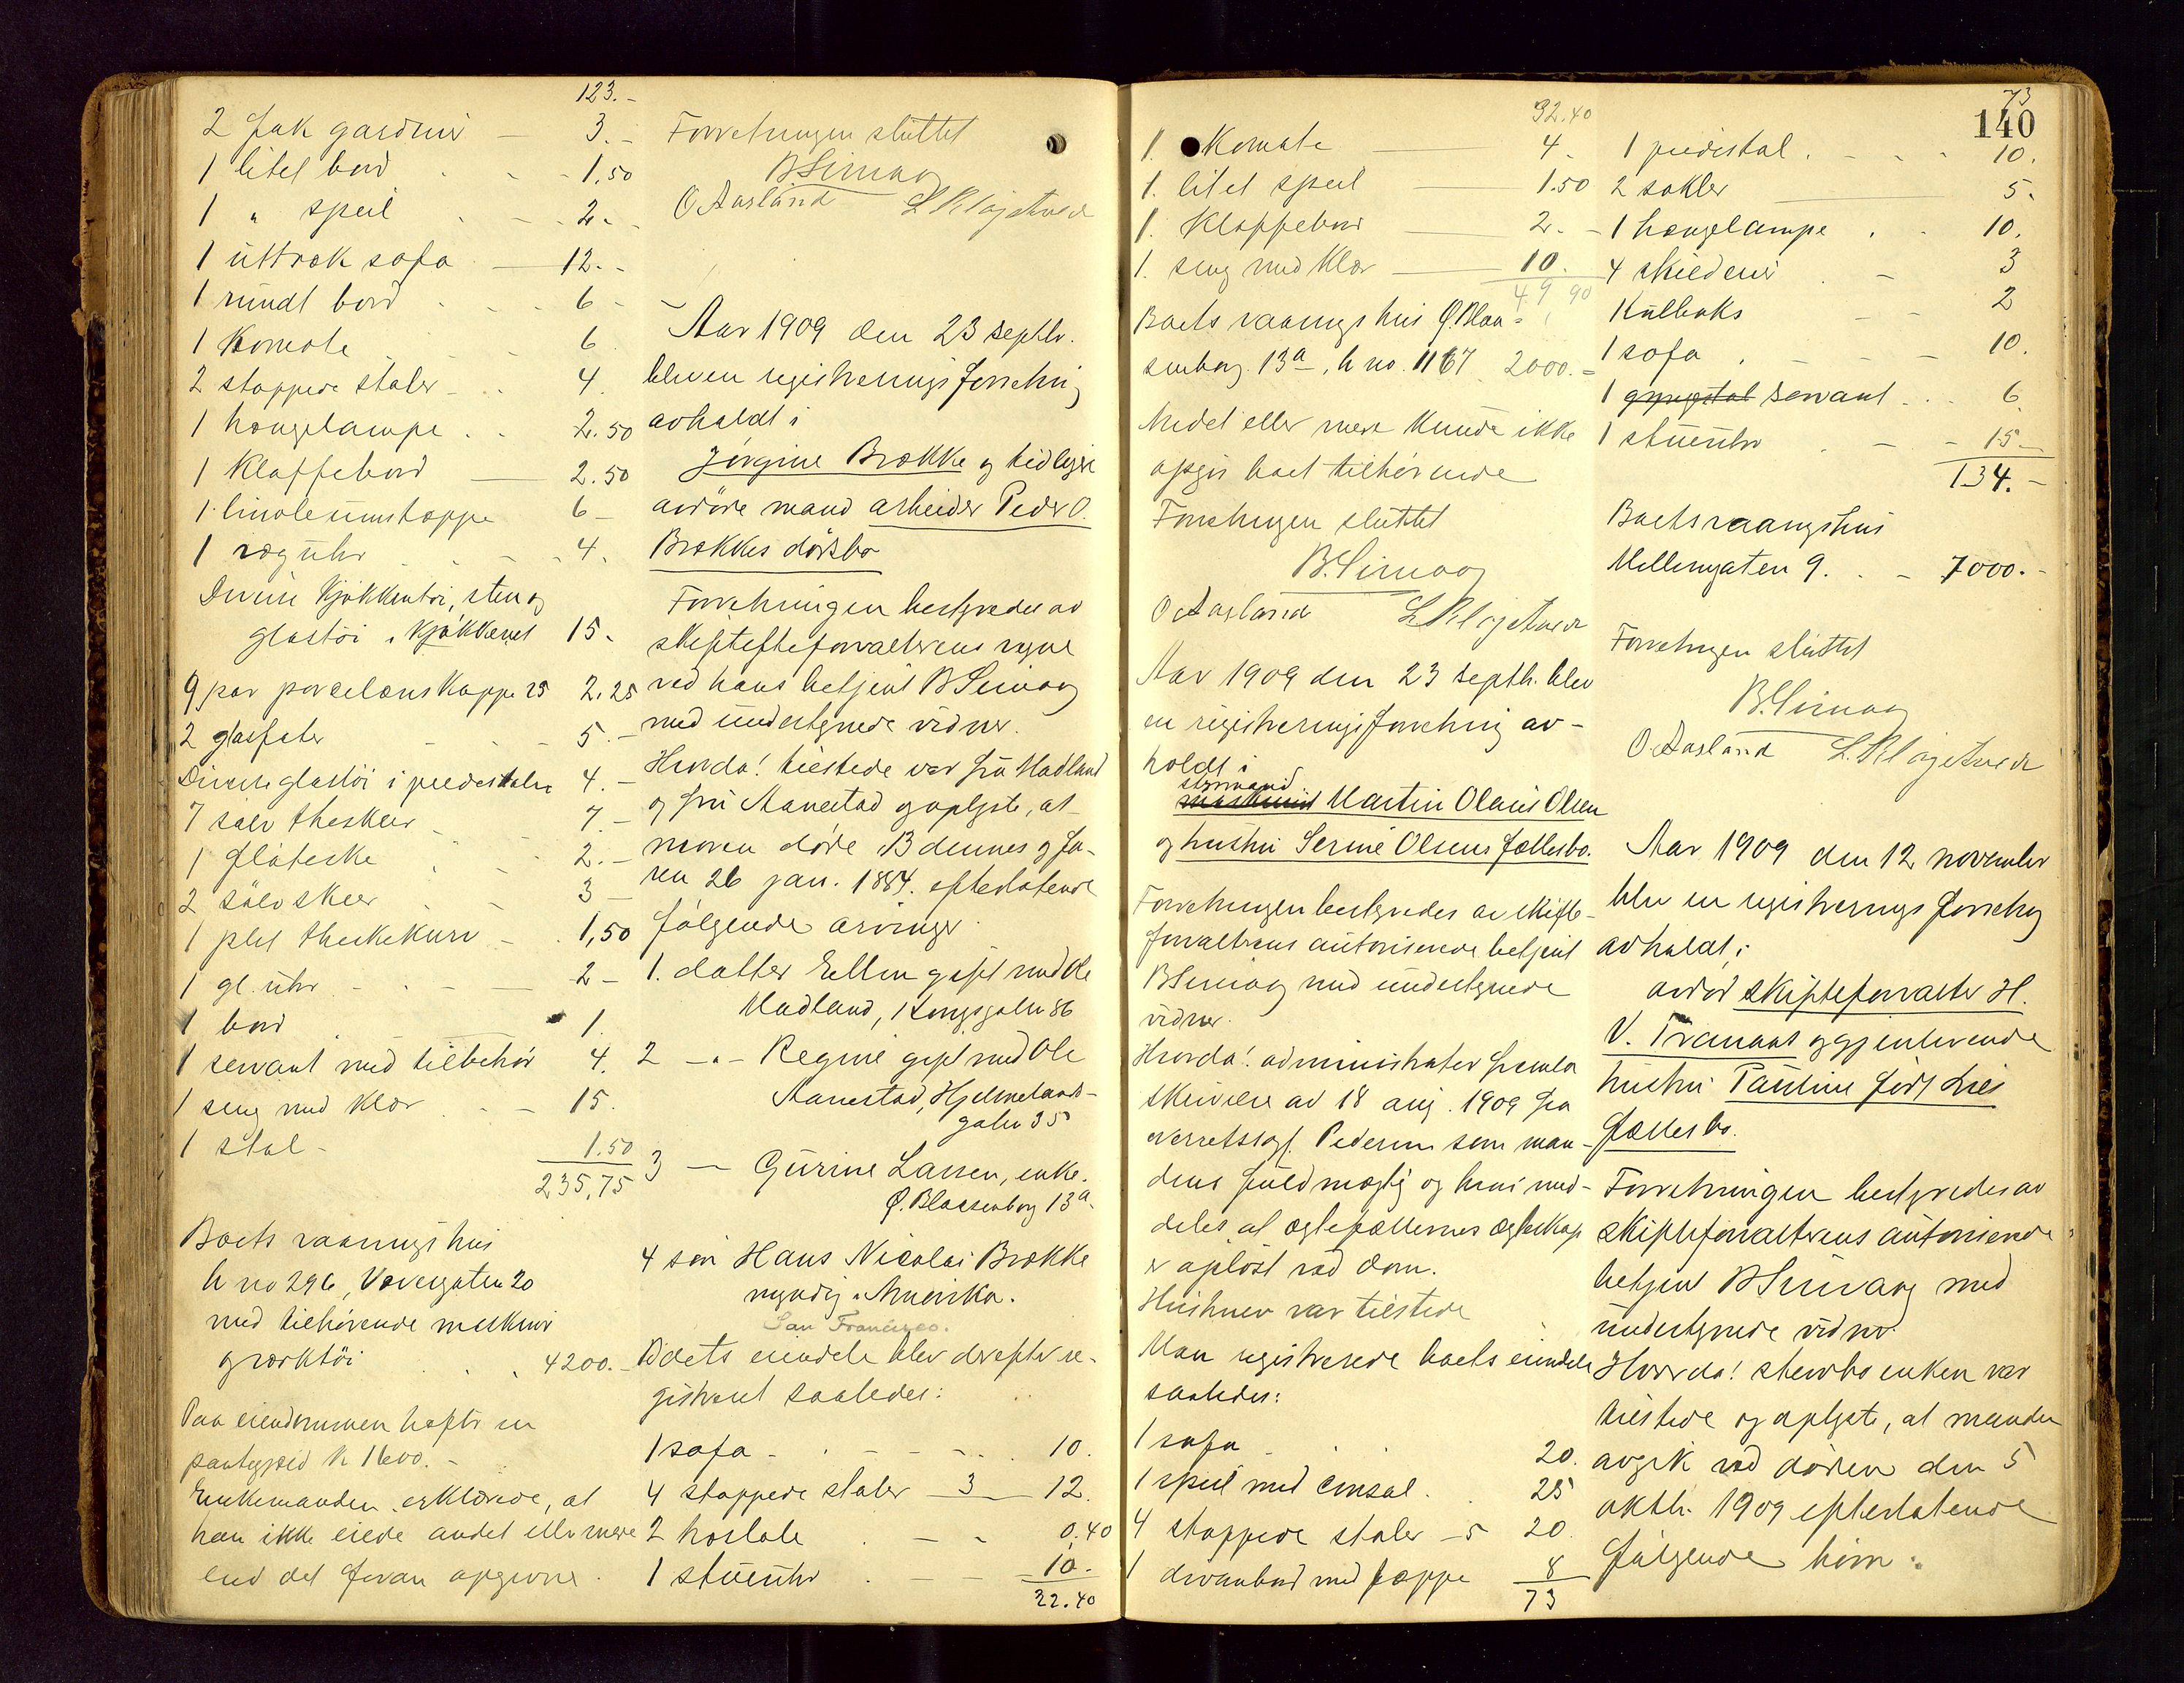 123.-
2 fak gardiner — 3.-
1 litet bord - - 1,50
1 " speil - - 2.-
1 uttræk sofa — 12.-
1 rundt bord - - 6-
1 Komode - 6
2 stoppede stoler - 4.
1 hængelampe . . 2.50
1 Klaffebord — 2.50
1 linoleumstæppe 6-
1 væguhr - - 4.
Diverse Kjøkkentøi, sten og
glastøi i Kjøkkenet 15.
9 par porcelæns Kopper 25 2.25
2 glasfater - - 5.-
Diverse glastøi i piedestalen 4.-
7 sølv theskeer - 7.-
1 fløteske - 2.-
2 sølvskeer - - 3-
1 plet theskekurv - 1,50
1 gl. uhr - - — 2-
1 bord . 1.
1 servant med tilbehør 4.
1 seng med klær - - 15.
1 stol - 1.50
235,75
Boets vaaningshus
h no 296, Vævergaten 20
med tilhørende maskiner
og værktøi . . 4200.-
Paa eiendommen hefter en
pantegjeld K 1600.-
Enkemanden erklærede, at
han ikke eiede andet eller mere
end det foran opgivne.
Forretningen sluttet
B Simvag
O Aasland
Aar 1909 den 23 septbr.
blev en registreringsforretning
avholdt i
Jørgine Brække og tidligere
avdøde mand arbeider Peder O.
Brækkes dødsbo
Forretningen bestyredes av
skifteforvalterens vegne
ved hans betjent B Simvag
med undertegnede vidner.
Hvorda! tilstede var fru Madland
og fru Aanestad og oplyste, at
moren døde 13 dennes og fa-
ren 26 jan. 1884. efterlatende
følgende arvinger
1. datter Ellen gift med Ole
Madland, Kongsgaten 86
2 -"- Regine gift med Ole
Aanestad, Hjelmelands-
gaten 35
3 — Gurine Larsen, enke.
Ø. Blaasenborg 13a.
4 søn Hans Nicolai Brække
myndig i Amerika.
San Francisco.
Boets eiendele blev derefter re-
gistreret saaledes:
1 sofa - . - - - . 10.
4 stoppede stoler — 3 — 12.
2 — - 0,40
1 stueuhr . — — 10.-
32.40
32.40
1. Komode — 4.
1. litet speil — 1.50
1. Klappebord — 2.-
1. seng med klær — 10.
49 90
Boets vaaningshus Ø. Blaa-
senborg. 13a, h no. 1167 2000.-
Andet eller mere Kunde ikke
opgis boet tilhørende
Forretningen sluttet
B. Simvag
O Aasland
Aar 1909 den 23 septb. blev
en registreringsforretning av-
holdt i
styrmand
maskinist Martin Olaus Olsen
og hustru Serine Olsens fællesbo.
Forretningen bestyredes av skifte-
forvalterens autoriserede betjent
B Simvag med undertegnede
vidner.
Hvorda! administrator fremla
skrivelse av 18 aug. 1909 fra
overretssagf. Pedersen som man-
dens fuldmægtig og hvori med-
deles, at ægtefællernes ægteskap
er opløst ved dom.
Hustruen var tilstede
Man registrerede boets eiendele
saaledes:
1 sofa - . . 20.
1 speil med consol . . 25
4 stoppede stoler - 5 20.
1 divanbord med tæppe 8
73
73
140
1 piedestal . - - - 10.
2 sokler — 5.
1 hængelampe . - 10.
4 skilderier . - 3
Kulboks - - 2
1 sofa . - - - 10.
1 gyngestol servant - . . 6
1 stueuhr . - - 15.-
134.-
Boets vaaningshus
Møllergaten 9. . - 7000.-
Forretningen sluttet
B. Simvag
O Aasland
Aar 1909 den 12 november
blev en registreringsforretning
avholdt i
avdød skifteforvalter H.
V. Tranaas og gjenlevende
hustru Pauline født Lies
fællesbo.
Forretningen bestyredes av
skifteforvalterens autoriserede
betjent B Simvag med
undertegnede vidner.
Hvorda! stervbo enken var
tilstede og oplyste, at manden
avgik ved døden den 5
oktbr. 1909 efterlatende
følgende børn: